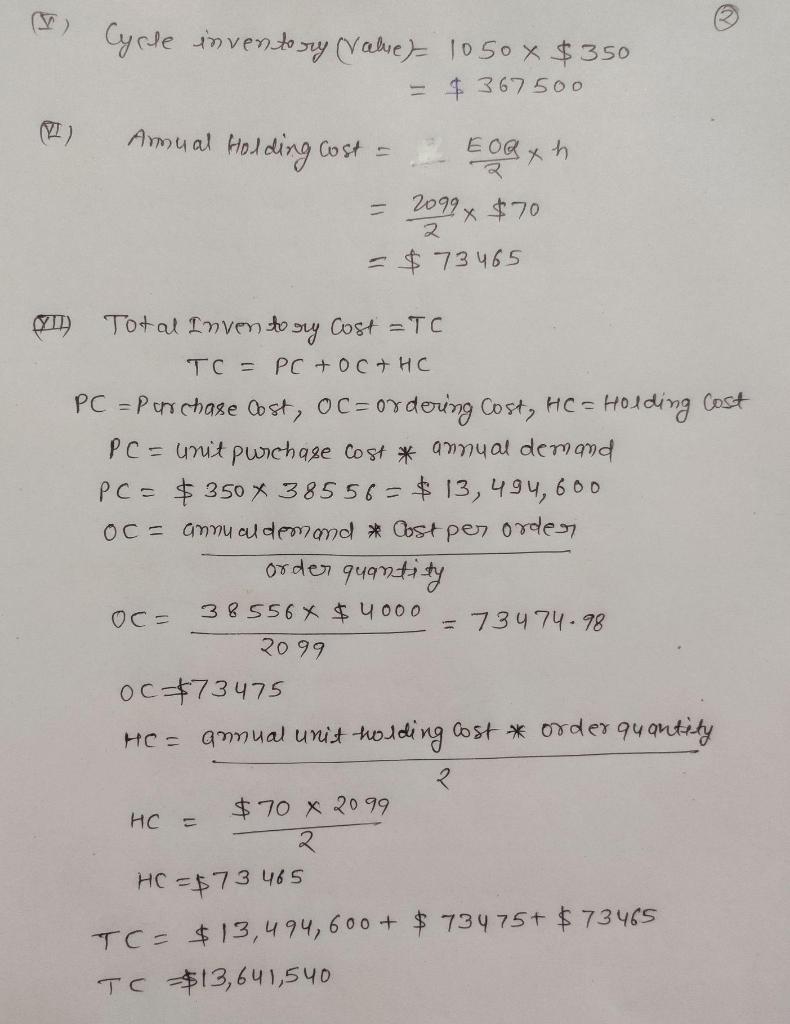 ②
(V) Cycle inventory (Value) = 1050 x $350
= $ 367500
(VI) Annual Holding Cost = EOQ/2 x h
= 2099/2 x $70
= $ 73465
(VII) Total Inventory Cost = TC
TC = PC + OC + HC
PC = Purchase Cost, OC = Ordering Cost, HC = Holding Cost
PC = unit purchase cost * annual demand
PC = $ 350 x 38556 = $ 13,494,600
OC = annual demand * Cost per order
order quantity
OC = 38556 x $ 4000 = 73474.98
2099
OC = $73475
HC = annual unit holding Cost * order quantity
2
HC = $70 x 2099
2
HC = $73465
TC = $13,494,600 + $ 73475 + $ 73465
TC = $13,641,540